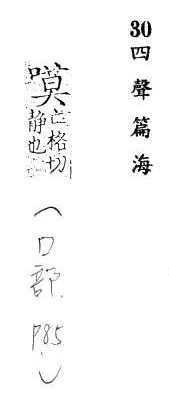 30四聲篇海
嗼亡格切
静也
(口部 P85)